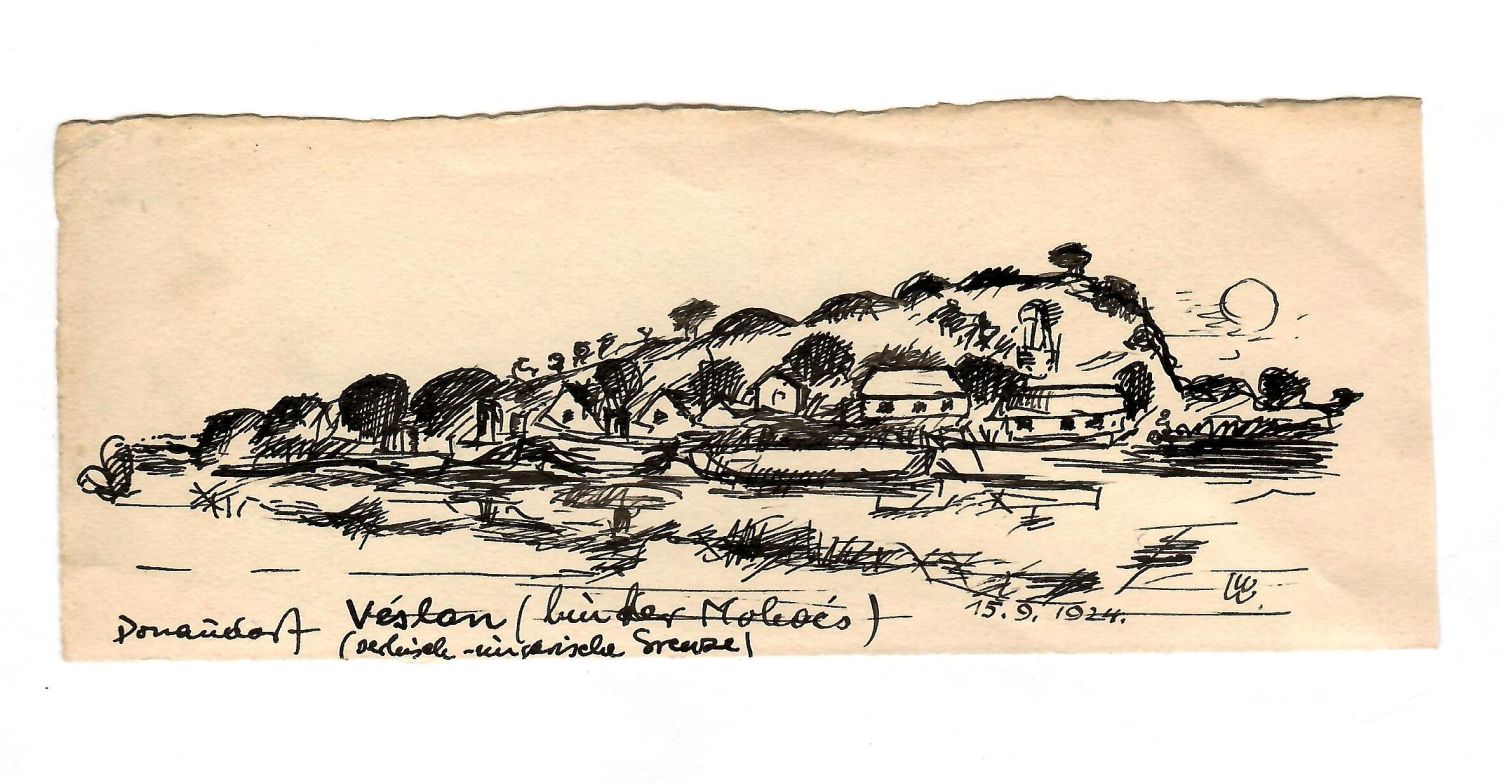 Donaudorf Véslan (hinter Mohács)
(serbisch-ungarische Grenze)
15.9.1924.